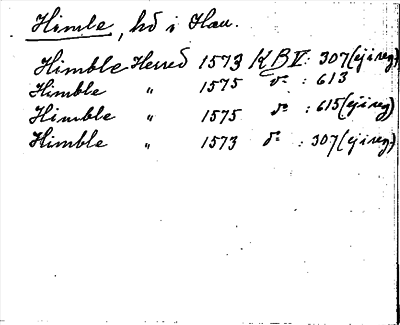 Himle, hd i Hau.
Himble Herred 1573 KB V: 307 (ej i reg)
Himble " 1575 do : 613
Himble " 1575 do : 615 (ej i reg)
Himble " 1573 do : 307 (ej i reg)